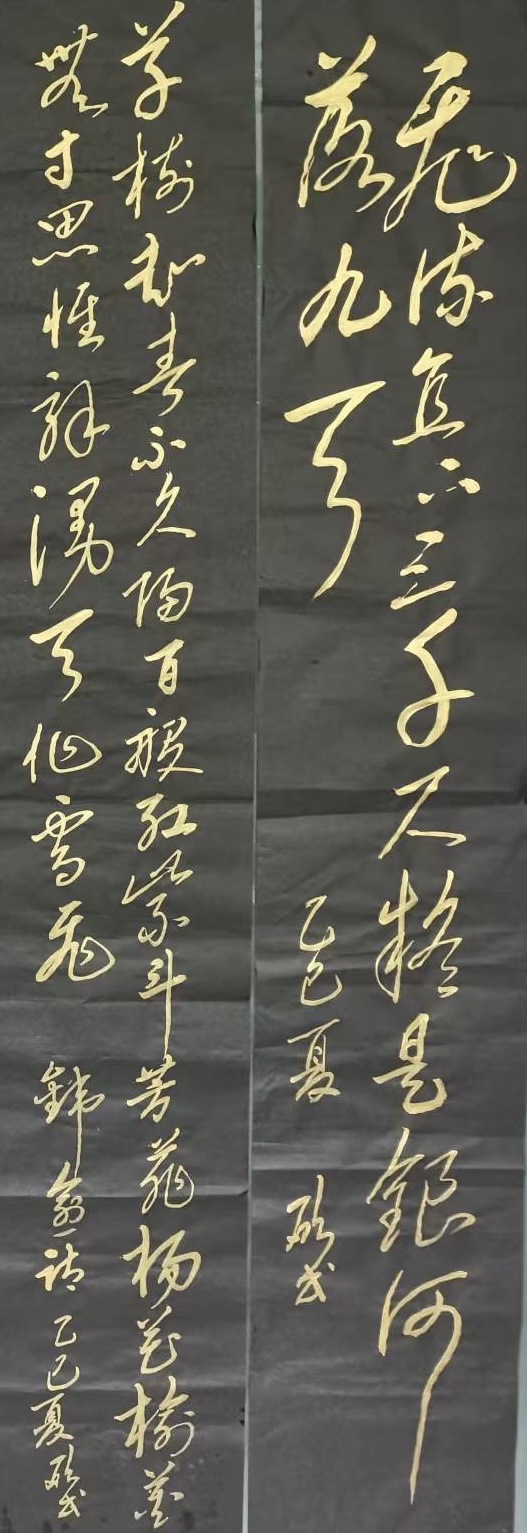 飛流直下三千尺疑是銀河
落九天 乙巳夏
草樹知春不久歸百般紅紫斗芳菲楊花榆莢
無才思惟解漫天作雪飛 韓愈詩 乙巳夏